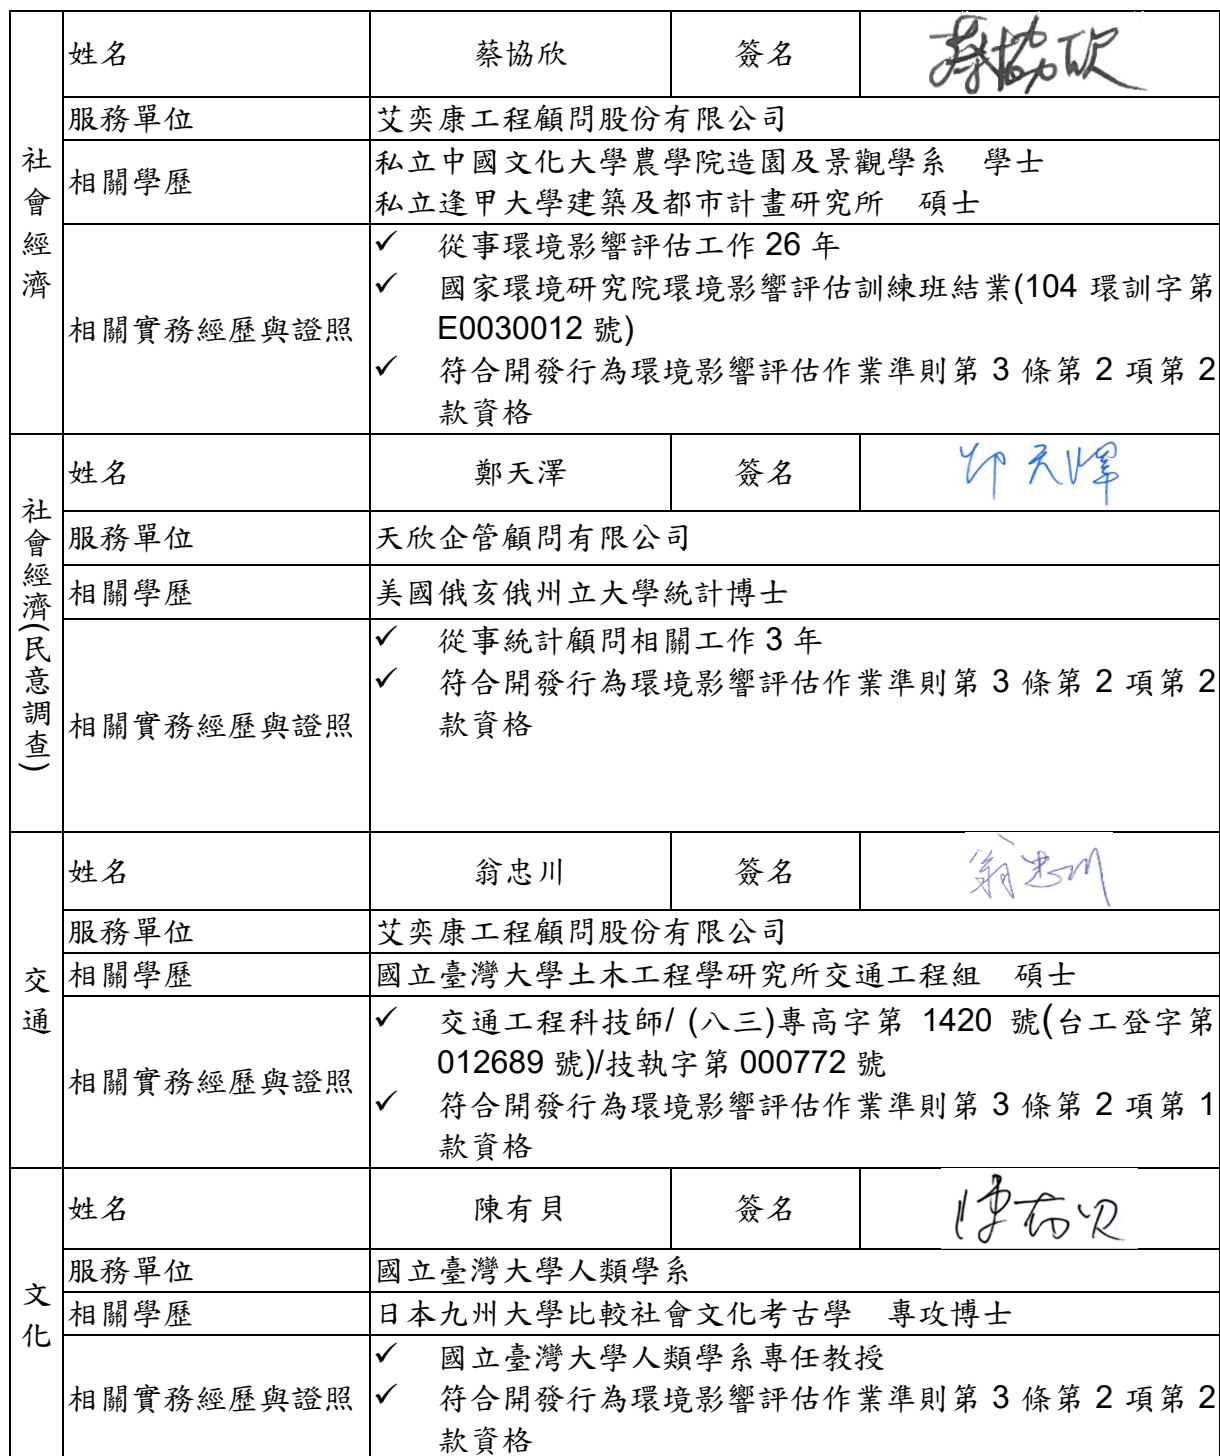 社會經濟
姓名 蔡協欣 簽名 蔡協欣
服務單位 艾奕康工程顧問股份有限公司
相關學歷 私立中國文化大學農學院造園及景觀學系 學士
私立逢甲大學建築及都市計畫研究所 碩士
相關實務經歷與證照
✓ 從事環境影響評估工作 26 年
✓ 國家環境研究院環境影響評估訓練班結業(104 環訓字第
E0030012 號)
✓ 符合開發行為環境影響評估作業準則第 3 條第 2 項第 2
款資格
社會經濟(民意調查)
姓名 鄭天澤 簽名 鄭天澤
服務單位 天欣企管顧問有限公司
相關學歷 美國俄亥俄州立大學統計博士
相關實務經歷與證照
✓ 從事統計顧問相關工作 3 年
✓ 符合開發行為環境影響評估作業準則第 3 條第 2 項第 2
款資格
交通
姓名 翁忠川 簽名 翁忠川
服務單位 艾奕康工程顧問股份有限公司
相關學歷 國立臺灣大學土木工程學研究所交通工程組 碩士
相關實務經歷與證照
✓ 交通工程科技師/ (八三)專高字第 1420 號(台工登字第
012689 號)/技執字第 000772 號
✓ 符合開發行為環境影響評估作業準則第 3 條第 2 項第 1
款資格
文化
姓名 陳有貝 簽名 陳有貝
服務單位 國立臺灣大學人類學系
相關學歷 日本九州大學比較社會文化考古學 專攻博士
相關實務經歷與證照
✓ 國立臺灣大學人類學系專任教授
✓ 符合開發行為環境影響評估作業準則第 3 條第 2 項第 2
款資格